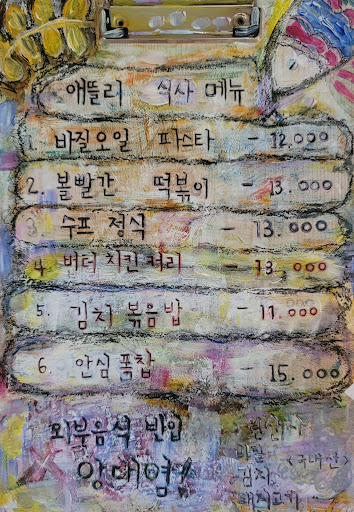 애뜰리 식사 메뉴
1. 바질오일 파스타 - 12.000
2. 볼빨간 떡볶이 - 13.000
3. 수프 정식 - 13.000
4. 버터 치킨 커리 - 13.000
5. 김치 볶음밥 - 11.000
6. 안심 폭찹 - 15.000
외부음식 반입
앙대염!!
쌀
김치 <국내산>
돼지고기